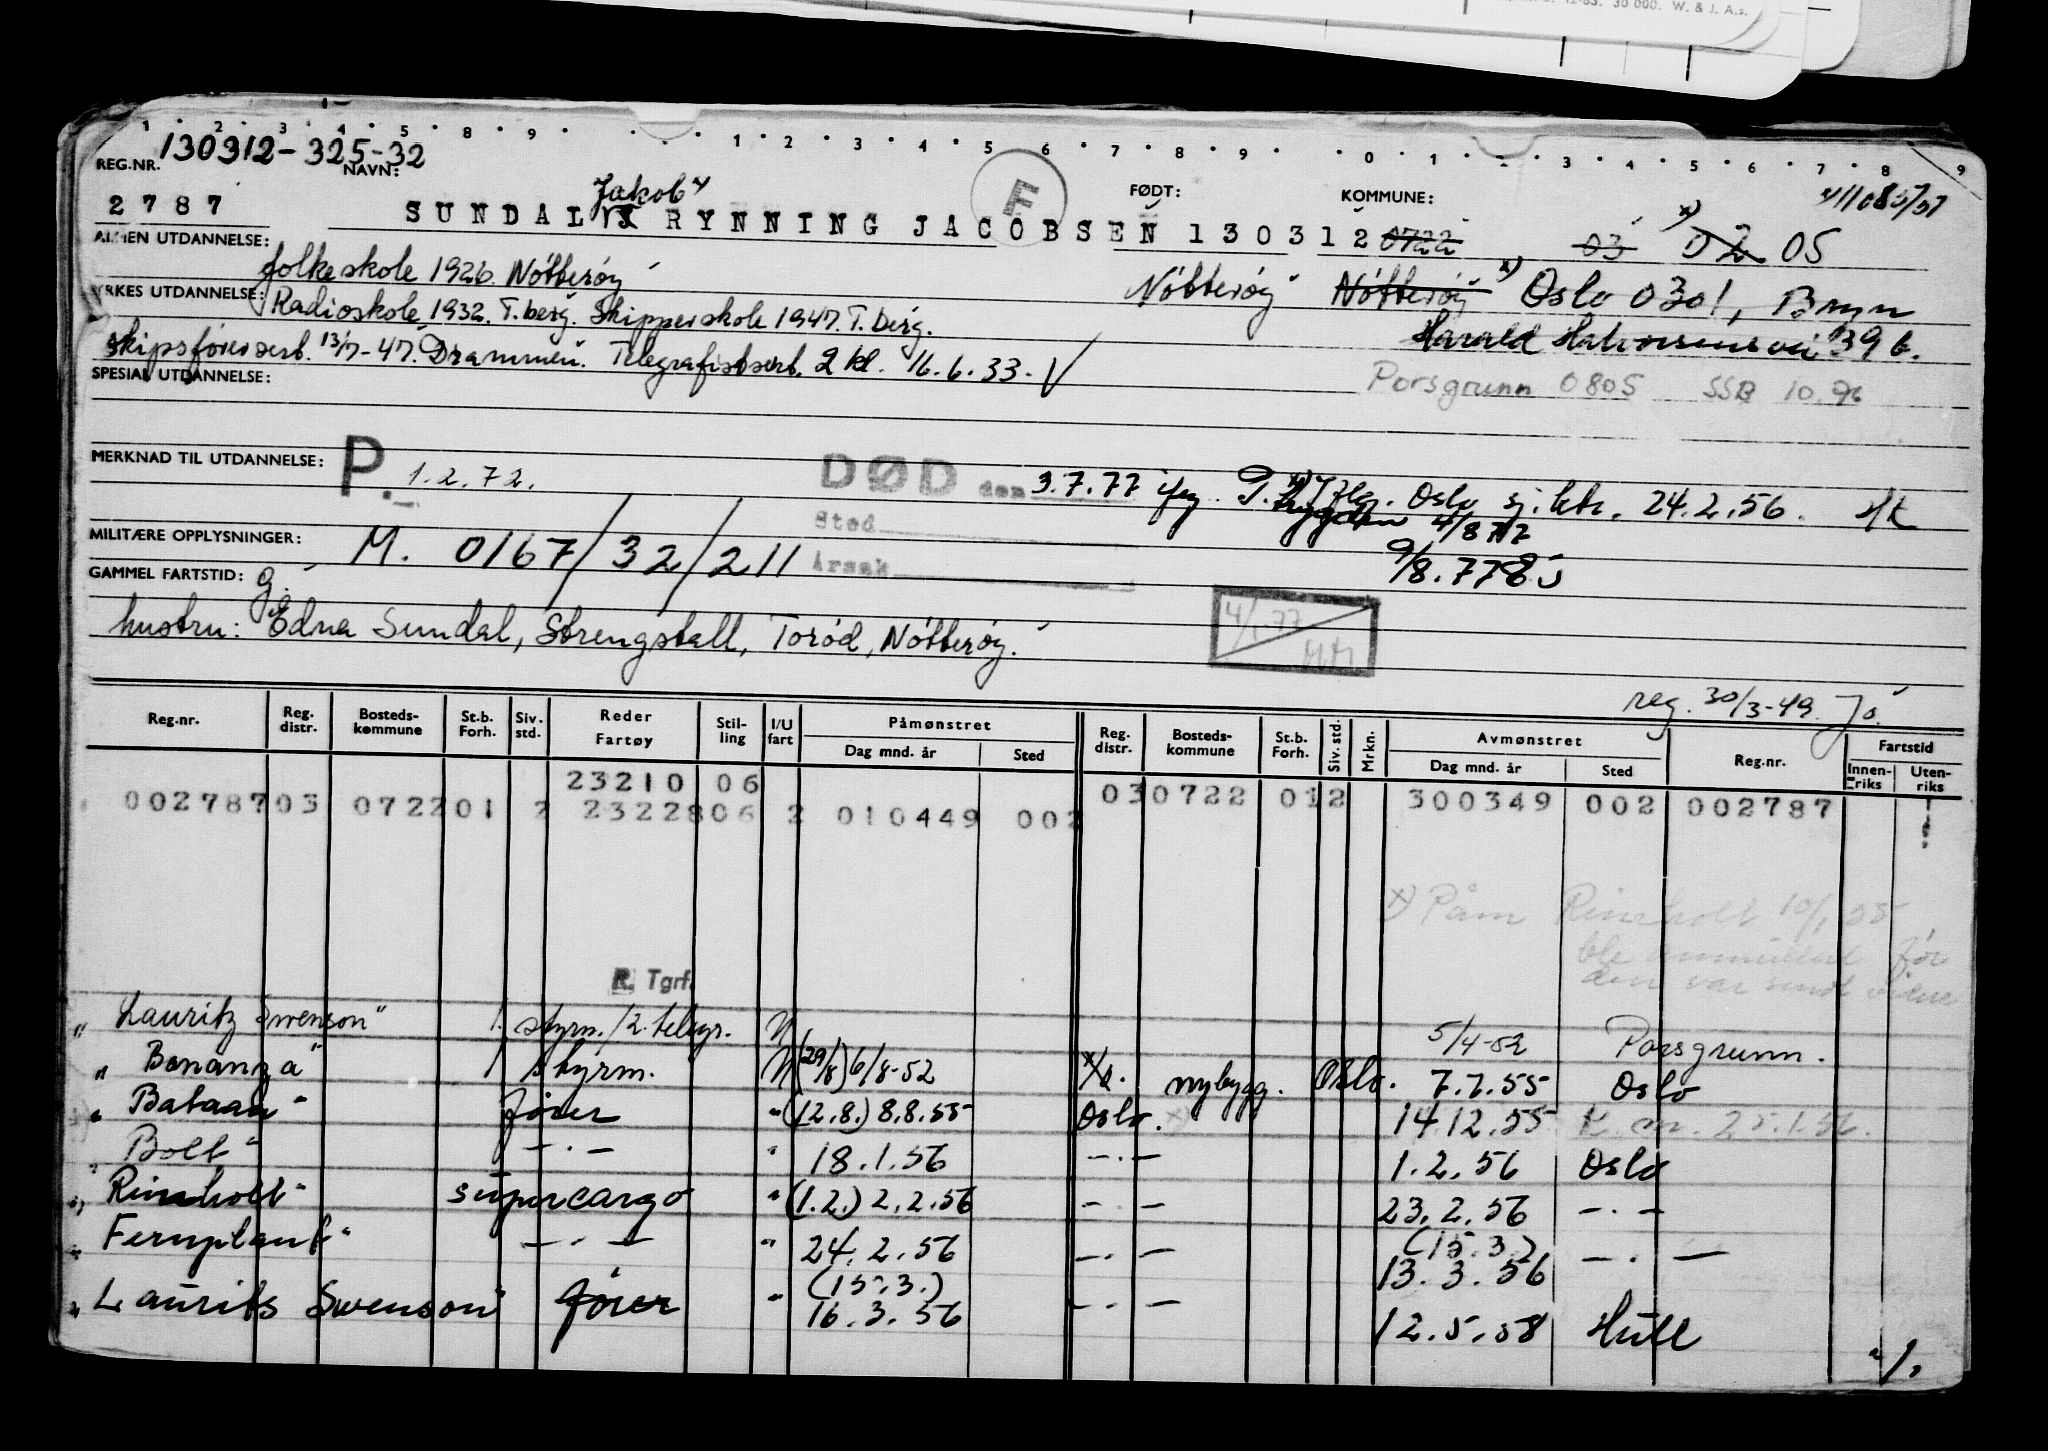 12-63. 30 000. W. & J. A.s.
1 2 3 4 5 8 9 1 2 3 4 5 6 7 8 9 0 1 3 4 5 6 7 8 9
REG.NR. 130312-325-32
NAVN: Jakob x)
FØDT:
KOMMUNE:
2787 SUNDAL RYNNING JACOBSEN 130312 0722 03 x) 02 05
F
ALMEN UTDANNELSE: folkeskole 1926. Nøtterøy
Nøtterøy Nøtterøy x) Oslo 0301, Bryn
YRKES UTDANNELSE: Radioskole 1932. T.berg. Skipperskole 1947. T.berg.
Harald Halvorsens vei 39 b.
skipsførersert. 13/7-47. Drammen. Telegrafistsert. 2 kl. 16.6.33. V
Porsgrunn 0805 SSB 10.
SPESIAL UTDANNELSE:
MERKNAD TIL UTDANNELSE: P. 1.2.72.
DØD den 3.7.77 ifg. P.trygden 4/8 77
x) Iflg. Oslo sj.ktr. 24.2.56.
Sted
9/8.77
MILITÆRE OPPLYSNINGER: M. 0167/32/211
Årsak
GAMMEL FARTSTID: g.
4/ 77
hustru: Edna Sundal, Strengstall, Torød, Nøtterøy.
reg. 30/3-49. Jó.
Reg.nr. Reg. distr. Bosteds-kommune St.b. Forh. Siv. std. Reder Fartøy Stil-ling I/U fart Påmønstret Dag mnd. år Sted Reg. distr. Bosteds-kommune St.b. Forh. Siv. std. Mrkn. Avmønstret Dag mnd. år Sted Reg.nr. Fartstid Innen-riks Uten-riks
23210 06
002787 03 0722 01 2 23228 06 2 010449 002 03 0722 01 2 300349 002 002787
x) Påm Rinnholt 10/1 55
ble annullert før
den var sendt videre
R. Tgrf.
" Lauritz Swenson" 1. styrm./2. telegr. N 5/4-52 Porsgrunn.
" Bonanza" 1 styrm. N (29/8) 6/8-52 nybygg. Oslo. 7.7.55 Oslo
" Bataan" fører " (12.8.) 8.8.55 Oslo. x) 14.12.55 K. m. 25.1.56.
" Bolt" -.- " 18.1.56 -.- 1.2.56 Oslo
" Rinnholt" supercargo " (1.2.) 2.2.56 -.- 23.2.56 -.-
" Fernplant" -.- " 24.2.56 -.- (15.3.) 13.3.56 -.-
" Laurits Swenson" fører " (15.3.) 16.3.56 -.- 12.5.58 Hull